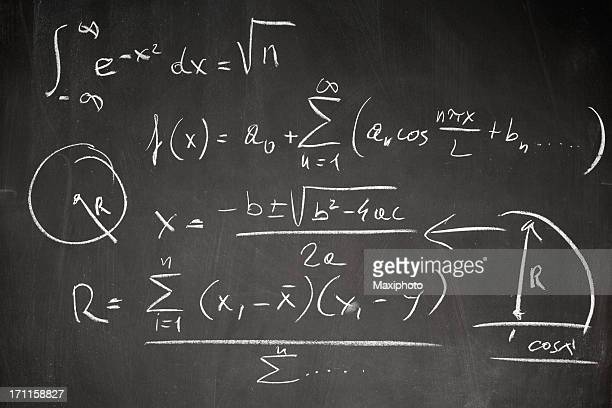 ∫_{-∞}^{∞} e^{-x²} dx = √n
f(x) = a₀ + ∑_{n=1}^{∞} (aₙ cos nπx/L + bₙ .....)
R
x = -b ± √(b² - 4ac) / 2a
R
R = ∑_{i=1}^{n} (x₁ - x̄)(y₁ - y) / ∑^{n} .....
cosx
gettyimages
Maxiphoto
171158827